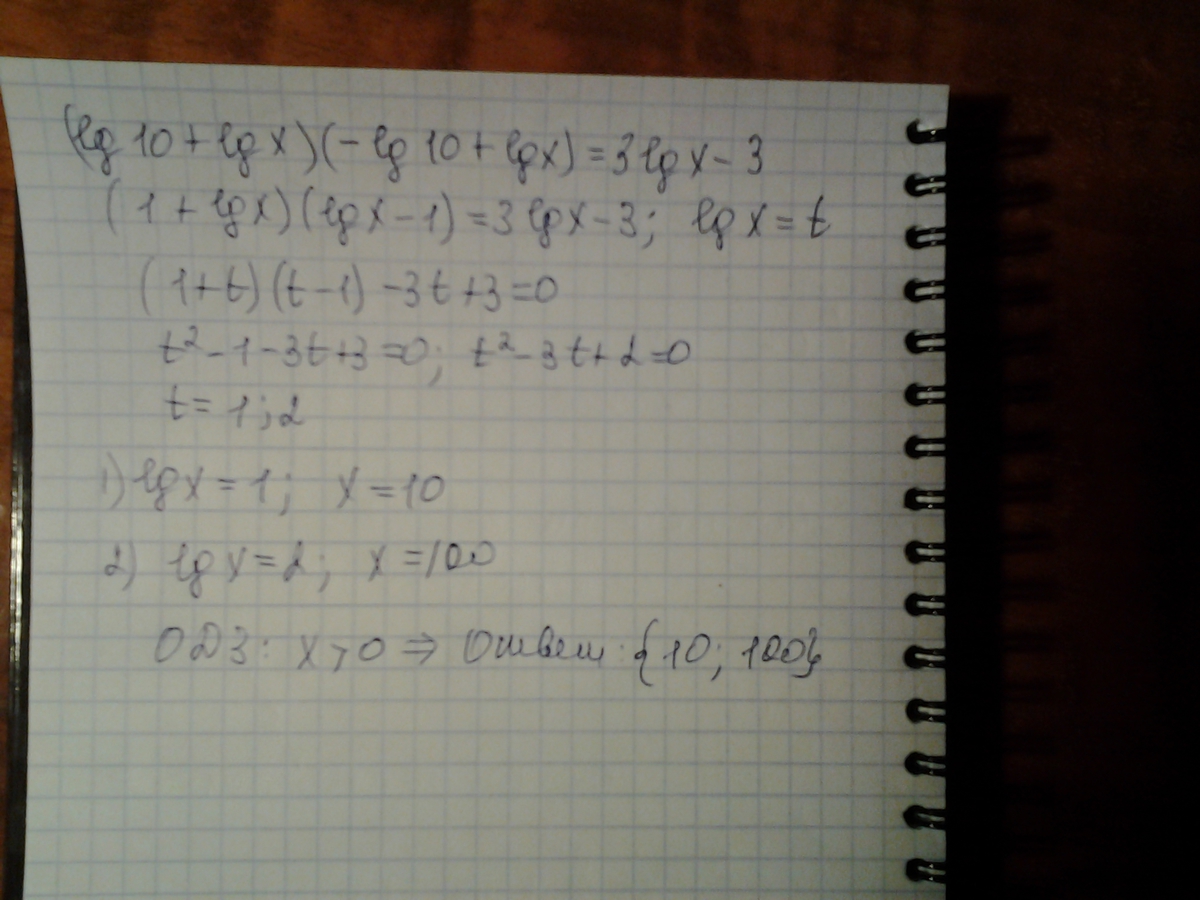 (lg 10 + lg x)(-lg 10 + lg x) = 3 lg x - 3
(1 + lg x)(lg x - 1) = 3 lg x - 3; lg x = t
(1 + t)(t - 1) - 3t + 3 = 0
t² - 1 - 3t + 3 = 0; t² - 3t + 2 = 0
t = 1; 2
1) lg x = 1; x = 10
2) lg x = 2; x = 100
ОДЗ: x > 0 ⇒ Ответ: {10; 100}